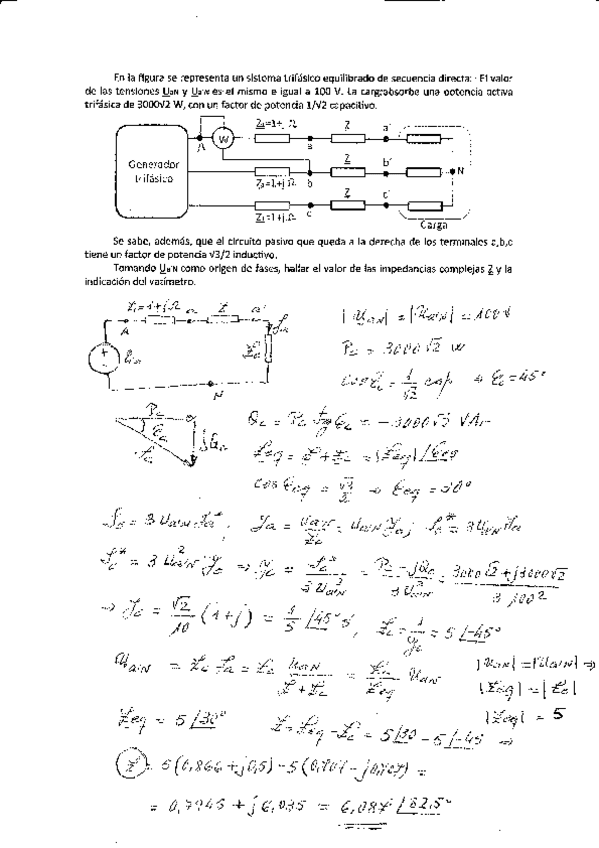 En la figura se representa un sistema trifásico equilibrado de secuencia directa: · El valor
de las tensiones UaN y Ua'N es el mismo e igual a 100 V. La carga absorbe una potencia activa
trifásica de 3000√2 W, con un factor de potencia 1/√2 capacitivo.
Z₁=1+j Ω Z a'
A W a
Generador
trifásico
Z₁=1+j Ω b Z b' N
Z₁=1+j Ω c Z c'
Carga
Se sabe, además, que el circuito pasivo que queda a la derecha de los terminales a,b,c
tiene un factor de potencia √3/2 inductivo.
Tomando Ua'N como origen de fases, hallar el valor de las impedancias complejas Z y la
indicación del vatímetro.
Z₁=1+jΩ a Z a'
A
N
|UaN| = |Ua'N| = 100V
Pc = 3000√2 W
cos φc = 1/√2 cap → φc = 45°
Pc φc Sc Qc
Qc = Pc tg φc = - 3000√2 VAr
Zeq = Z + Zc = |Zeq| /φeq
cos φeq = √3/2 → φeq = 30°
Sc = 3 Ua'N Ia* ; Ia = Ua'N/Zc = Ua'N Yc ; Sc* = 3 Ua'N Ia
Sc* = 3 Ua'N² Yc ⇒ Yc = Sc*/3 Ua'N² = Pc - jQc/3 Ua'N² = 3000√2 + j3000√2/3 100²
⇒ Yc = √2/10 (1+j) = 1/5 /45° S, Zc = 1/Yc = 5 /-45°
Ua'N = Zc Ia = Zc UaN/Z + Zc = Zc/Zeq UaN
|UaN| = |Ua'N| ⇒
|Zeq| = |Zc|
|Zeq| = 5
Zeq = 5 /30° Z = Zeq - Zc = 5 /30 - 5 /-45 ⇒
Z = 5(0,866 + j0,5) - 5(0,707 - j0,707) =
= 0,7945 + j 6,035 = 6,087 /82,5°